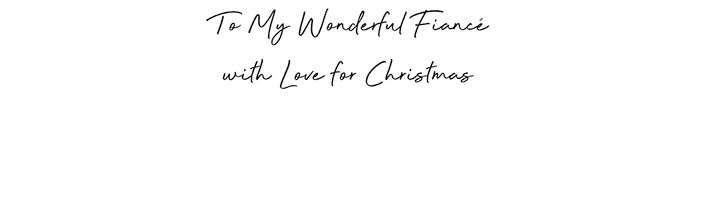 To My Wonderful Fiancé
with Love for Christmas